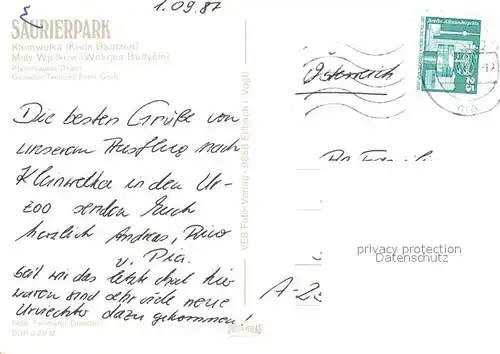 1.09.87
SAURIERPARK
Kleinwelka (Kreis Bautzen)
Mały Wjelkow (Wokrjes Budyšin)
Gestalter/Twórićel: Franz Gruß
Die besten Grüße von
unserem Ausflug nach
Kleinwelka in den Ur-
zoo senden Euch
herzlich Andreas, Rico
u. Pia.
Seit wir das letzte Mal hier
waren sind sehr viele neue
Urviecher dazu gekommen!
Foto: Seemann, Dresden
DDR 0,20 M
VEB Foto-Verlag · 9648 Erlbach i. Vogtl.
Berlin, Alexanderplatz
25
Österreich
privacy protection
Datenschutz
A-23